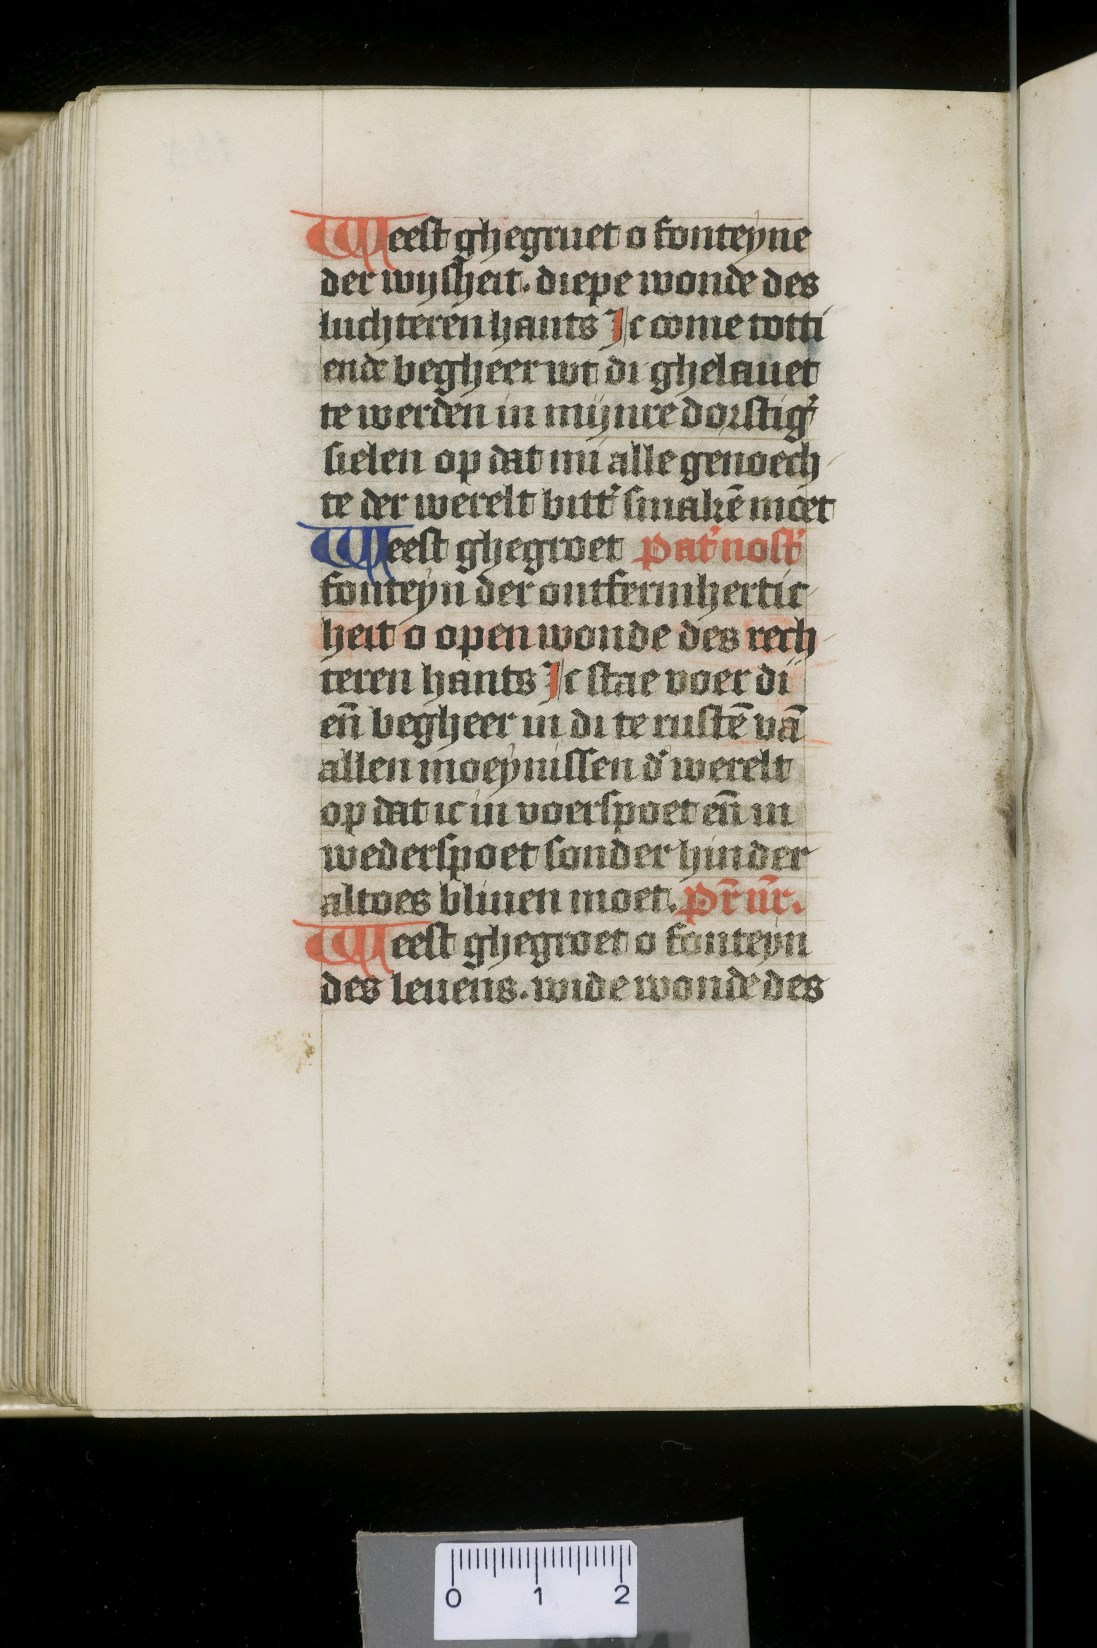 Weest ghegruet o fonteyne
der wijsheit. diepe wonde des
luchteren hants Ic come totti
ende begheer wt di ghelauet
te werden in mijnre dorstigˀ
sielen op dat mi alle genoech
te der werelt bittˀ smakē moet
Weest ghegroet Patˀnostˀ
fonteyn der ontfermhertic
heit o open wonde des rech
teren hants Ic stae voer di
eñ begheer in di te rustē vā
allen moeynissen dˀ werelt
op dat ic in voerspoet eñ in
wederspoet sonder hinder
altoes bliuen moet. Pr̄ nr̄.
Weest ghegroet o fonteyn
des leuens. wide wonde des
0 1 2